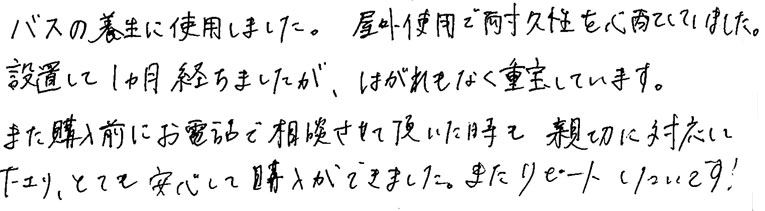 バスの養生に使用しました。 屋外使用で耐久性を心配していました。
設置して1ヵ月経ちましたが、はがれもなく重宝しています。
また購入前にお電話で相談させて頂いた時も 親切に対応して
下さり、とても安心して購入ができました。またリピートしたいです!